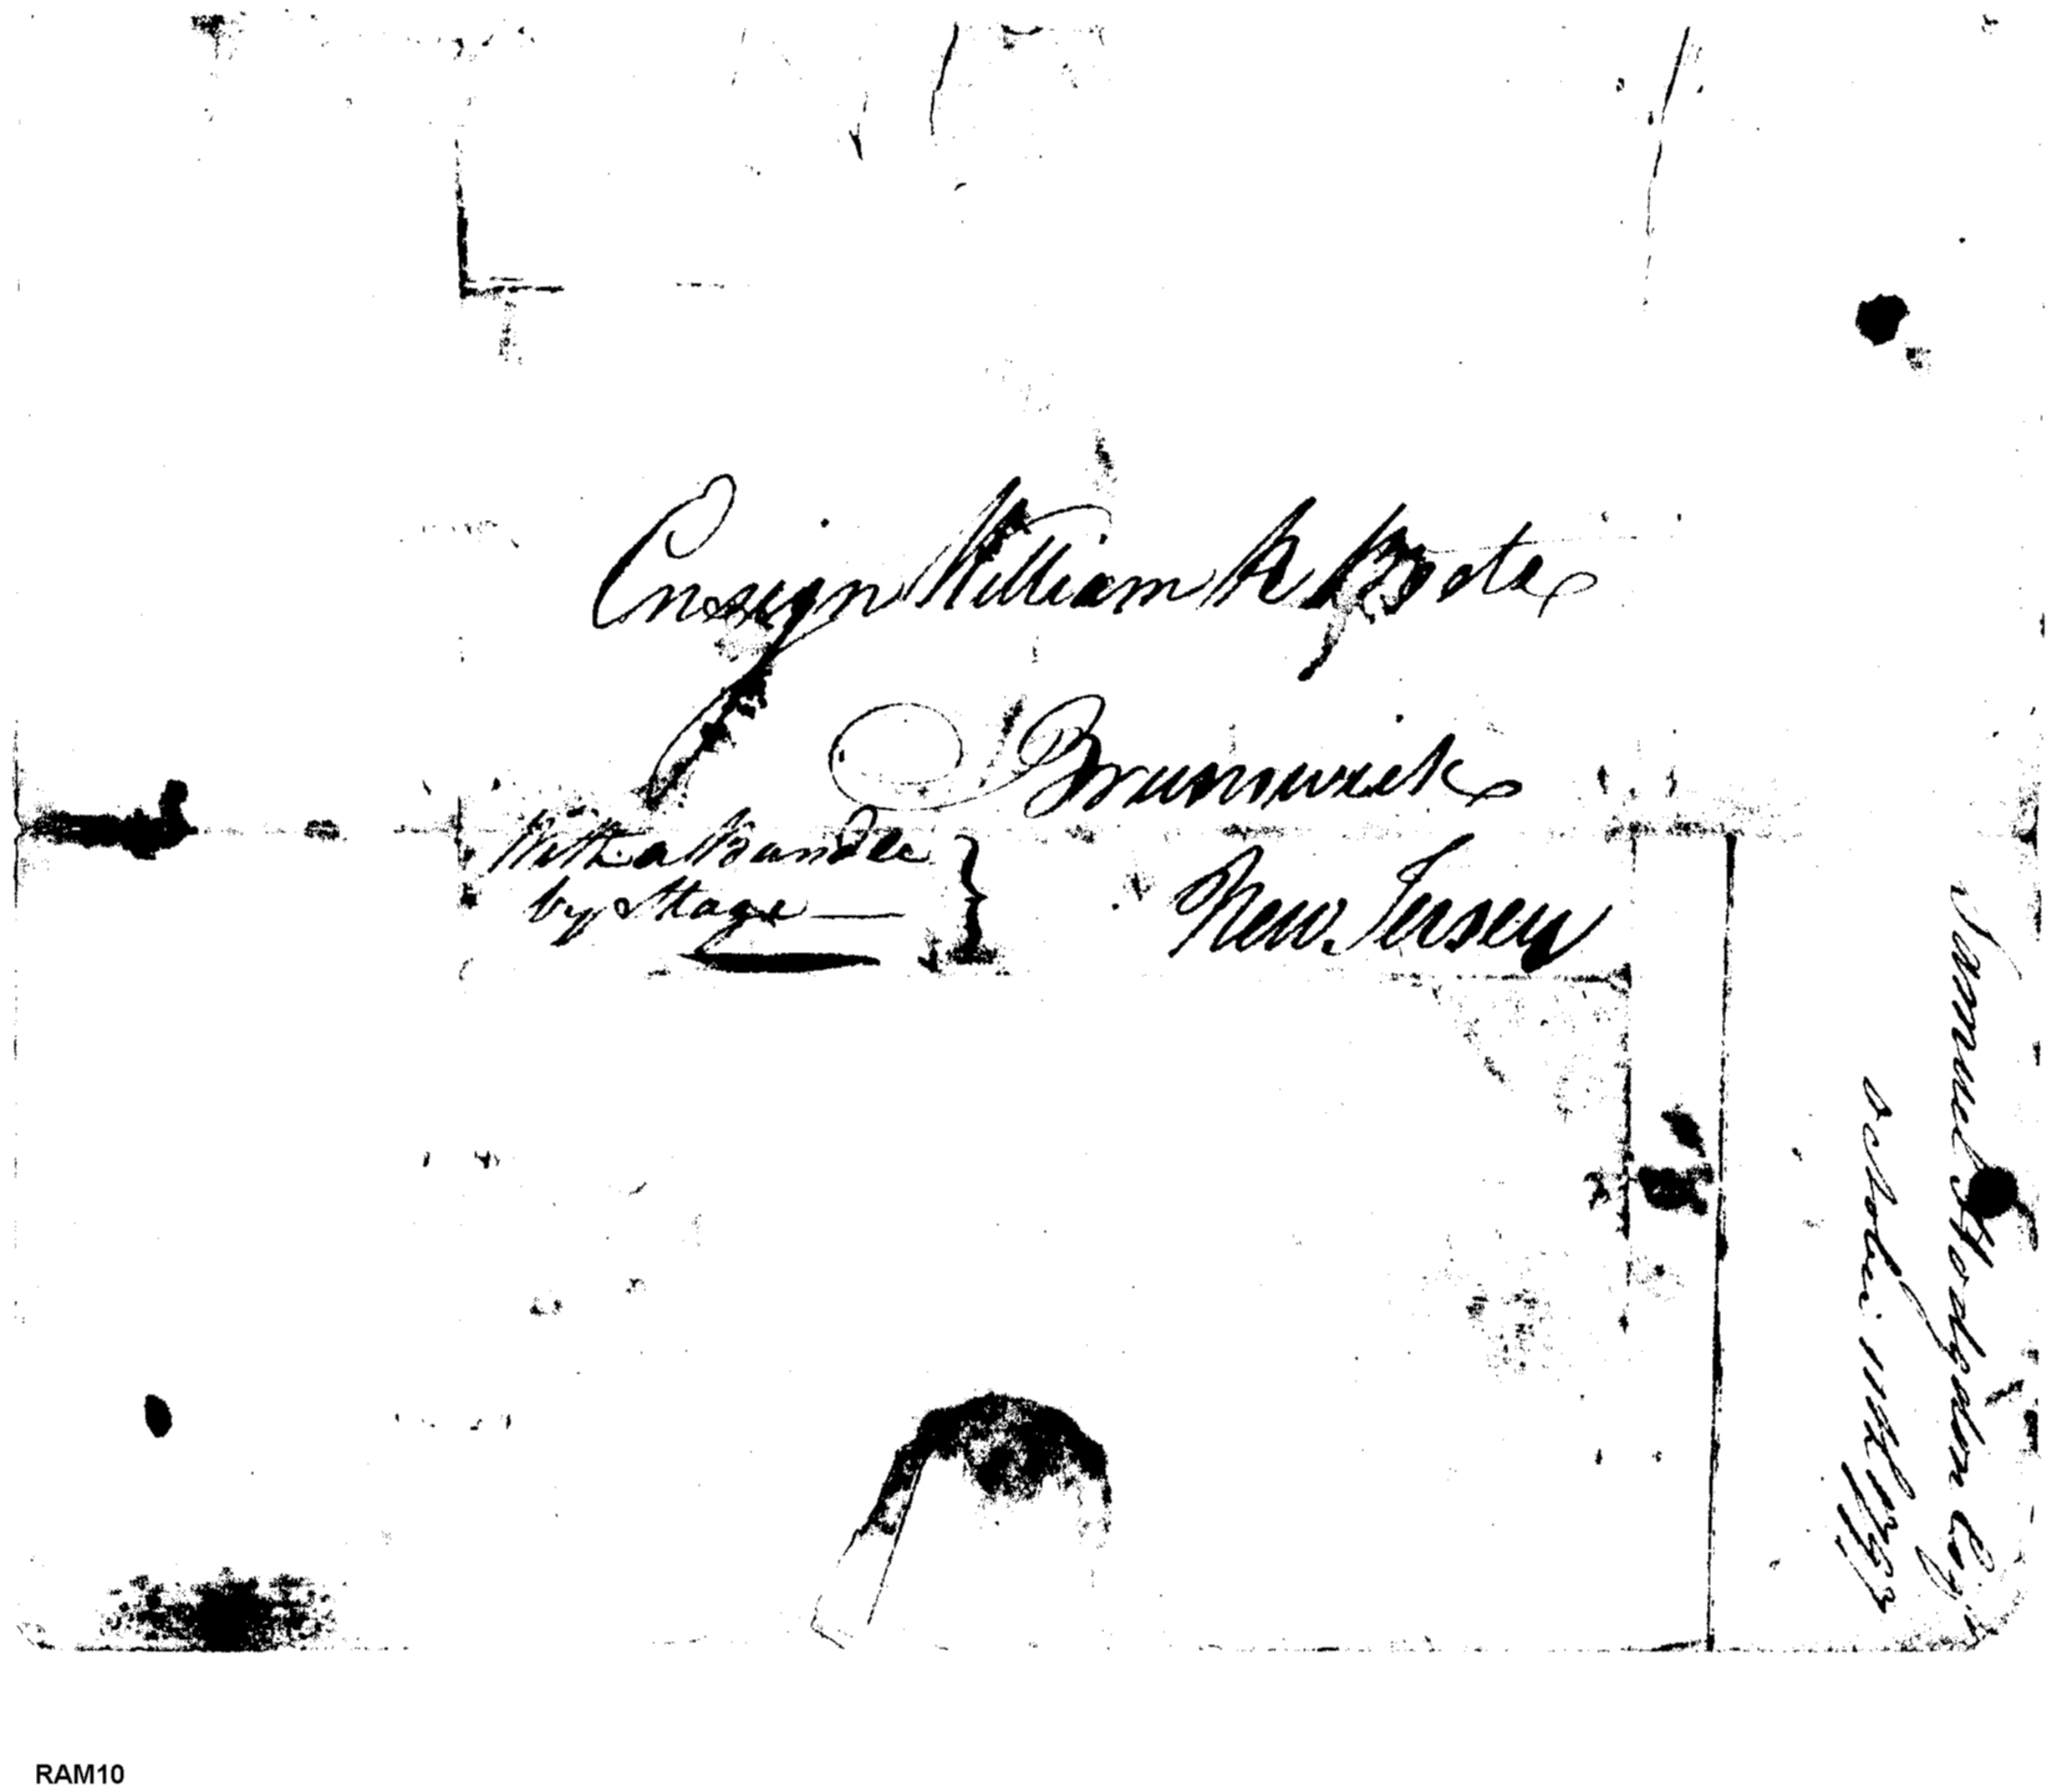 Ensign William R Boote
Brunswick
With a Bundle
by Stage
New Jersey
Samuel Hodgdon Esqr
October 11th 1792
RAM10